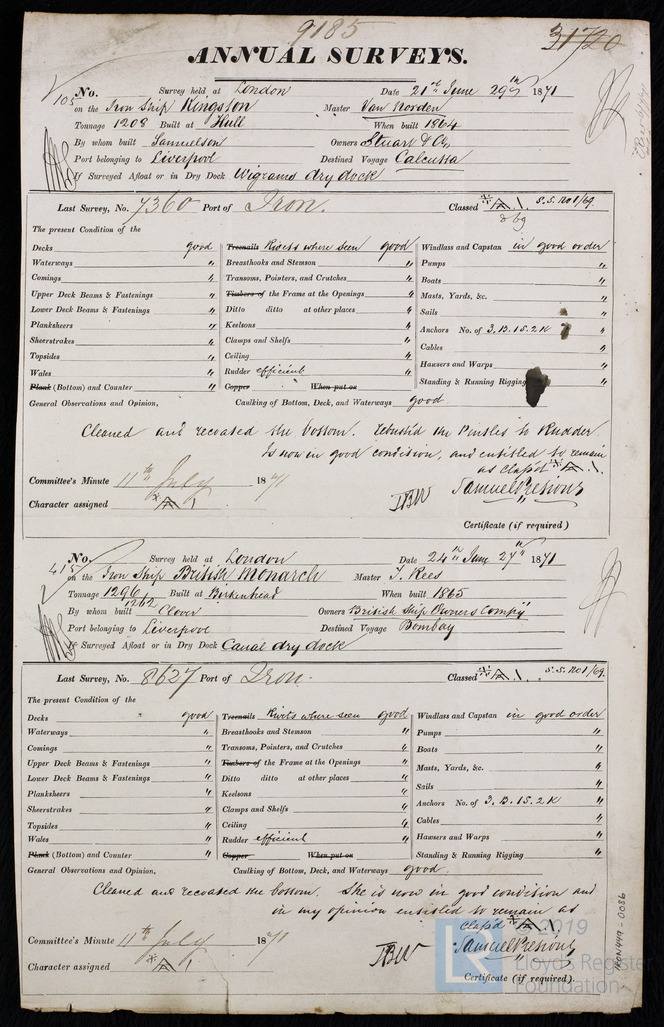 9185
31720
ANNUAL SURVEYS.
No. Survey held at London Date 21st June 29th 1871
105 on the Iron Ship Kingston Master Van Norden
Tonnage 1208 Built at Hull When built 1864
By whom built Samuelson Owners Stuart & Co,
Port belonging to Liverpool Destined Voyage Calcutta
If Surveyed Afloat or in Dry Dock Wigrams dry dock
Last Survey, No. 7360 Port of Iron. Classed A 1 S.S. No 1/69.
The present Condition of the
Decks good Treenails Rivets where seen good Windlass and Capstan in good order
Waterways " Breasthooks and Stemson " Pumps "
Comings " Transoms, Pointers, and Crutches " Boats "
Upper Deck Beams & Fastenings " Timbers of the Frame at the Openings " Masts, Yards, &c. "
Lower Deck Beams & Fastenings " Ditto ditto at other places " Sails
Planksheers " Keelsons " Anchors No. of 3. B. 1S. 2K "
Sheerstrakes " Clamps and Shelfs " Cables "
Topsides " Ceiling " Hawsers and Warps "
Wales " Rudder efficient Standing & Running Rigging "
Plank (Bottom) and Counter " Copper When put on
General Observations and Opinion, Caulking of Bottom, Deck, and Waterways good
Cleaned and recoated the bottom. Rebush'd the Pintles to Rudder.
Is now in good condition, and entitled to remain
as class'd A 1.
Committee's Minute 11th July 1871
Character assigned A 1
Certificate (if required)
No. Survey held at London Date 24th June 27th 1871
415 on the Iron Ship British Monarch Master T. Rees
Tonnage 1296 Built at Birkenhead When built 1865
1262
By whom built Clover Owners British Ship Owners Compy
Port belonging to Liverpool Destined Voyage Bombay
If Surveyed Afloat or in Dry Dock Canal dry dock
Last Survey, No. 8627 Port of Iron. Classed A 1 S.S. No 1/69.
The present Condition of the
Decks " good Treenails Rivets where seen good Windlass and Capstan in good order
Waterways " Breasthooks and Stemson " Pumps "
Comings " Transoms, Pointers, and Crutches " Boats "
Upper Deck Beams & Fastenings " Timbers of the Frame at the Openings " Masts, Yards, &c. "
Lower Deck Beams & Fastenings " Ditto ditto at other places " Sails "
Planksheers " Keelsons " Anchors No. of 3. B. 1S. 2K "
Sheerstrakes " Clamps and Shelfs " Cables "
Topsides " Ceiling " Hawsers and Warps "
Wales " Rudder efficient " Standing & Running Rigging "
Plank (Bottom) and Counter " Copper When put on
General Observations and Opinion, Caulking of Bottom, Deck, and Waterways good
Cleaned and recoated the bottom. She is now in good condition and
in my opinion entitled to remain as
class'd A 1.
Committee's Minute 11th July 1871
Character assigned A 1
Certificate (if required).
© 2019
Lloyd's Register
Foundation
IRON449-0086